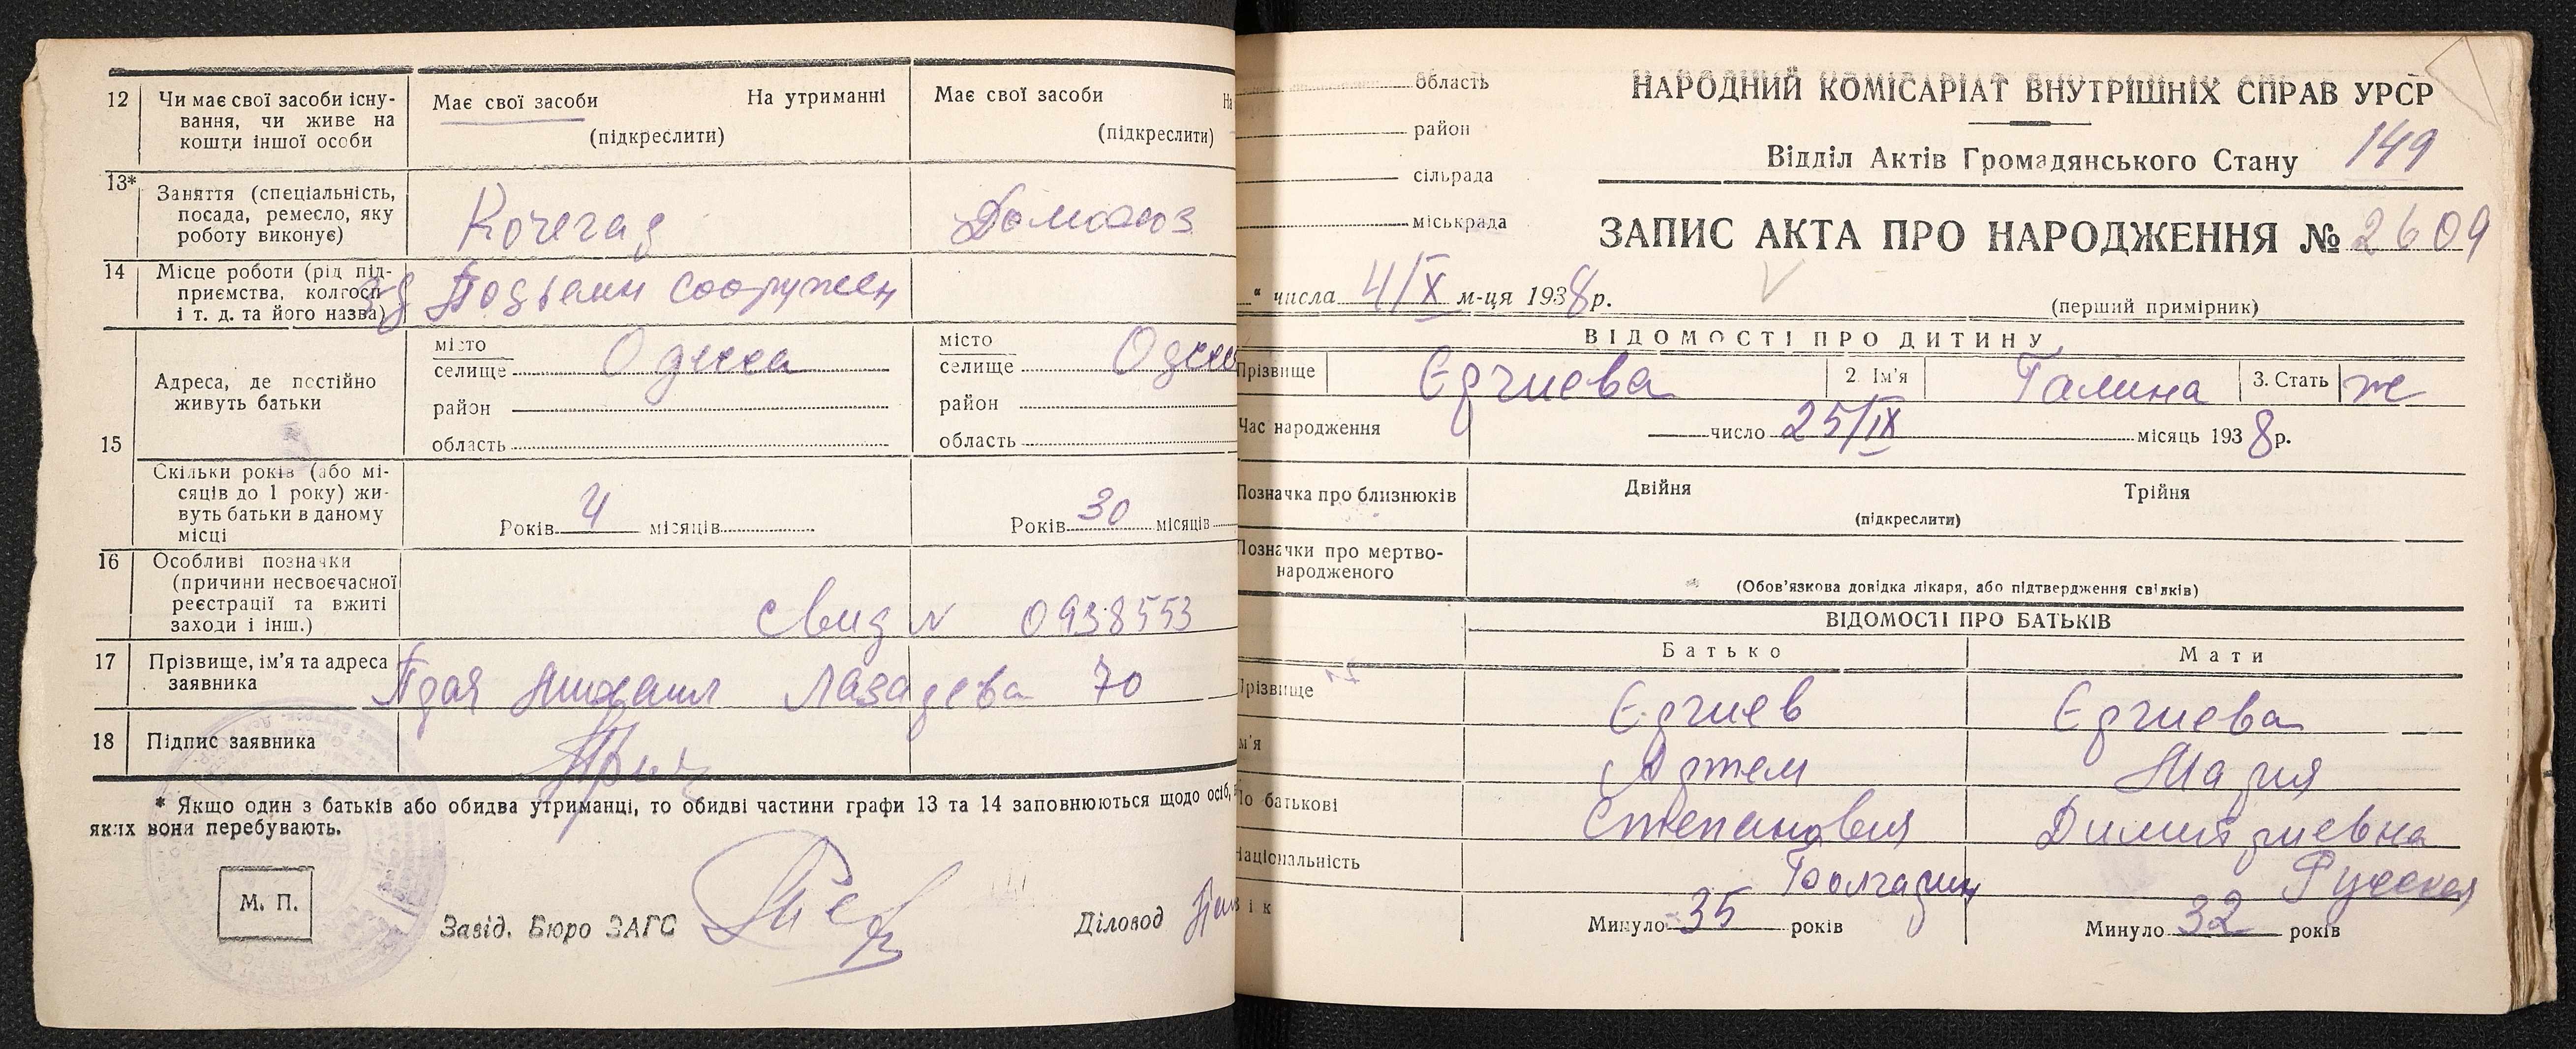 12 Чи має свої засоби існу-
вання, чи живе на
кошти іншої особи
Має свої засоби На утриманні
(підкреслити)
Має свої засоби На
(підкреслити)
13* Заняття (спеціальність,
посада, ремесло, яку
роботу виконує)
Кочегар
Домохоз
14 Місце роботи (рід під-
приємства, колгосп
і т. д. та його назва)
Подъемн сооружен
Адреса, де постійно
живуть батьки
місто
селище Одесса
район
область
місто
селище Одесс
район
область
15
Скільки років (або мі-
сяців до 1 року) жи-
вуть батьки в даному
місці
Років 4 місяців
Років 30 місяців
16 Особливі позначки
(причини несвоєчасної
реєстрації та вжиті
заходи і інш.)
Свид N 0938553
17 Прізвище, ім'я та адреса
заявника
Михаил Лазарева 70
18 Підпис заявника
* Якщо один з батьків або обидва утриманці, то обидві частини графи 13 та 14 заповнюються щодо осіб,
яких вони перебувають.
М. П.
Завід. Бюро ЗАГС
Діловод
область
район
сільрада
міськрада
НАРОДНИЙ КОМІСАРІАТ ВНУТРІШНІХ СПРАВ УРСР
Відділ Актів Громадянського Стану 149
ЗАПИС АКТА ПРО НАРОДЖЕННЯ № 2609
" числа 4/X м-ця 1938 р.
(перший примірник)
ВІДОМОСТІ ПРО ДИТИНУ
Прізвище Єргиева 2. Ім'я Галина 3. Стать ж
Час народження число 25/IX місяць 1938 р.
Позначка про близнюків Двійня Трійня
(підкреслити)
Позначки про мертво-
народженого
(Обов'язкова довідка лікаря, або підтвердження свідків)
ВІДОМОСТІ ПРО БАТЬКІВ
Батько Мати
Прізвище Єргиев Єргиева
м'я Артем Мария
По батькові Степанович Димитриевна
Національність Болгарин Русская
ік Минуло 35 років Минуло 32 років